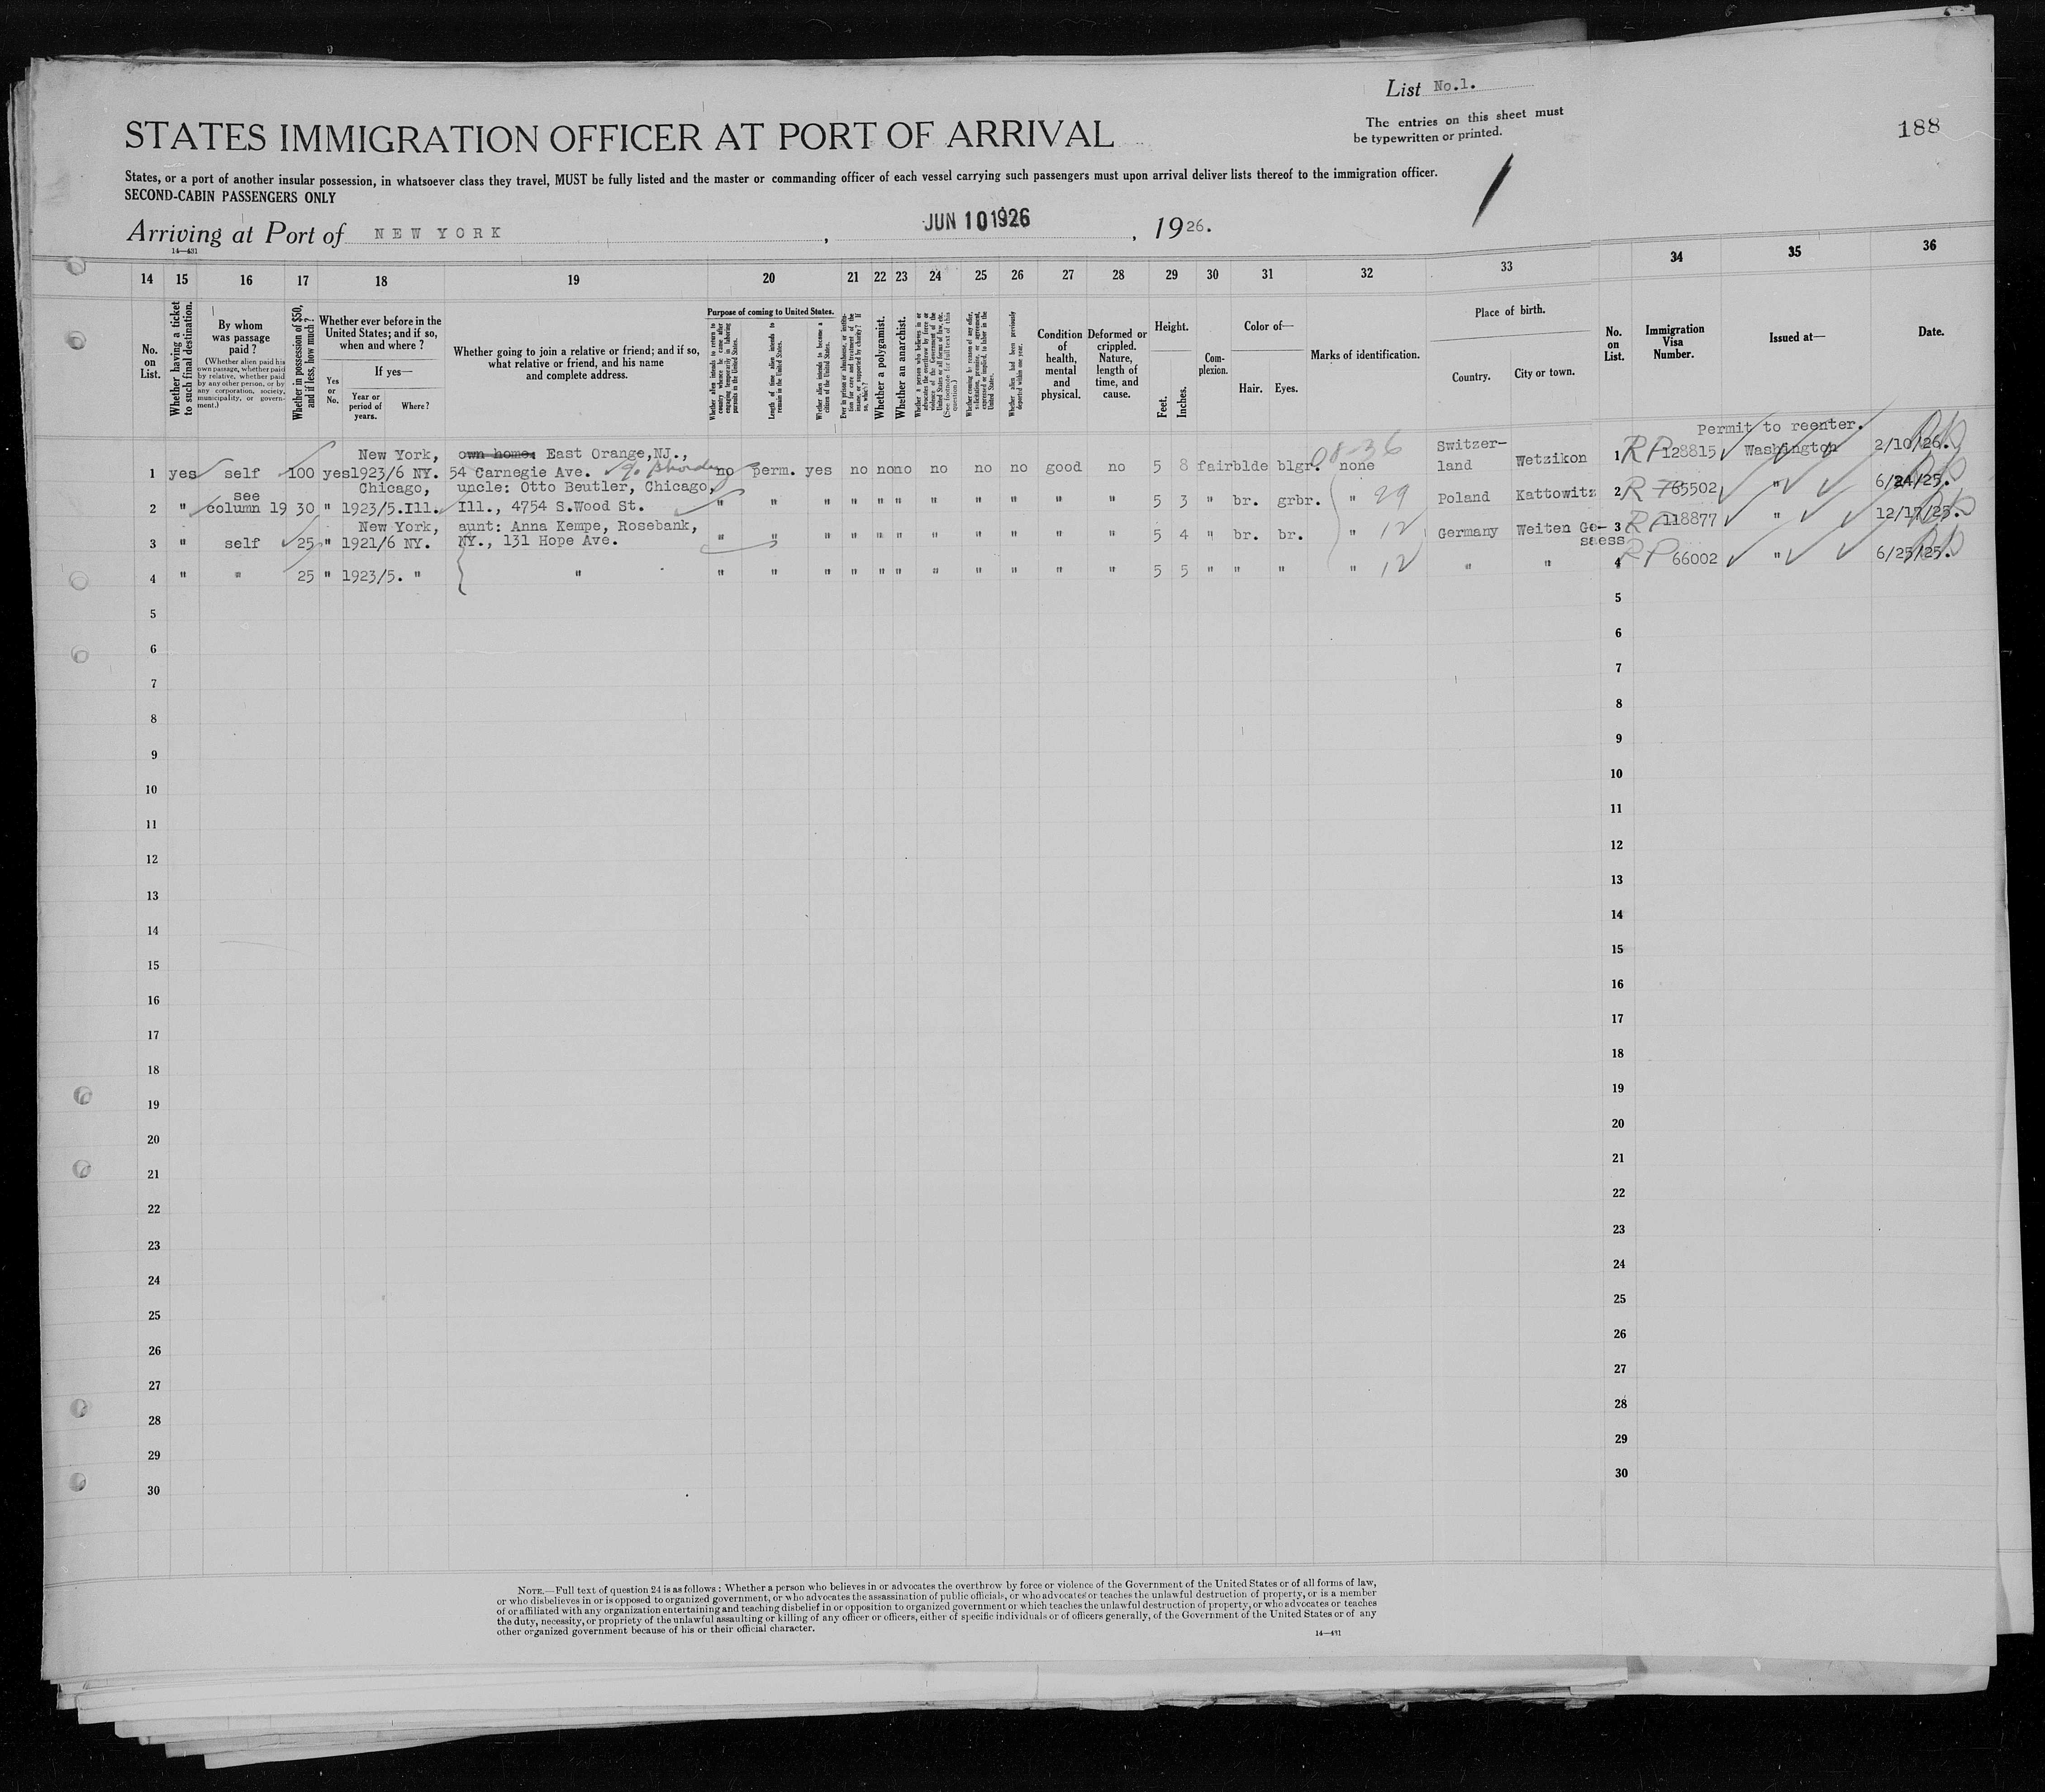 List No.1.
The entries on this sheet must
be typewritten or printed.
188
STATES IMMIGRATION OFFICER AT PORT OF ARRIVAL
States, or a port of another insular possession, in whatsoever class they travel, MUST be fully listed and the master or commanding officer of each vessel carrying such passengers must upon arrival deliver lists thereof to the immigration officer.
SECOND-CABIN PASSENGERS ONLY
Arriving at Port of NEW YORK , JUN 10 1926 , 1926.
14—431
14 15 16 17 18 19 20 21 22 23 24 25 26 27 28 29 30 31 32 33 34 35 36
No. on List.
Whether having a ticket to such final destination.
By whom was passage paid?
(Whether alien paid his own passage, whether paid by relative, whether paid by any other person, or by any corporation, society, municipality, or government.)
Whether in possession of $50, and if less, how much?
Whether ever before in the United States; and if so, when and where?
Yes or No.
If yes—
Year or period of years.
Where?
Whether going to join a relative or friend; and if so, what relative or friend, and his name and complete address.
Purpose of coming to United States.
Whether alien intends to return to country whence he came after engaging temporarily in laboring pursuits in the United States.
Length of time alien intends to remain in the United States.
Whether alien intends to become a citizen of the United States.
Ever in prison or almshouse, or institution for care and treatment of the insane, or supported by charity? If so, which?
Whether a polygamist.
Whether an anarchist.
Whether a person who believes in or advocates the overthrow by force or violence of the Government of the United States or all forms of law, etc. (See footnote for full text of this question.)
Whether coming by reason of any offer, solicitation, promise, or agreement, expressed or implied, to labor in the United States.
Whether alien had been previously deported within one year.
Condition of health, mental and physical.
Deformed or crippled. Nature, length of time, and cause.
Height.
Feet. Inches.
Complexion.
Color of—
Hair. Eyes.
Marks of identification.
Place of birth.
Country. City or town.
No. on List.
Immigration Visa Number.
Issued at—
Date.
Permit to reenter.
New York, own home: East Orange,NJ., 08-36 Switzer-
1 yes self 100 yes 1923/6 NY. 54 Carnegie Ave. no perm. yes no no no no no no good no 5 8 fair blde blgr. none land Wetzikon 1 RP 128815 Washington 2/10/26.
see Chicago, uncle: Otto Beutler, Chicago,
2 " column 19 30 " 1923/5.Ill. Ill., 4754 S.Wood St. " " " " " " " " " " " 5 3 " br. grbr. " 29 Poland Kattowitz 2 RP 65502 " 6/24/25.
New York, aunt: Anna Kempe, Rosebank,
3 " self 25 " 1921/6 NY. NY., 131 Hope Ave. " " " " " " " " " " " 5 4 " br. br. " 12 Germany Weiten Ge-saess 3 RP 118877 " 12/17/25.
4 " " 25 " 1923/5. " " " " " " " " " " " " " 5 5 " " " " 12 " " 4 RP 66002 " 6/25/25.
5 5
6 6
7 7
8 8
9 9
10 10
11 11
12 12
13 13
14 14
15 15
16 16
17 17
18 18
19 19
20 20
21 21
22 22
23 23
24 24
25 25
26 26
27 27
28 28
29 29
30 30
NOTE.—Full text of question 24 is as follows: Whether a person who believes in or advocates the overthrow by force or violence of the Government of the United States or of all forms of law,
or who disbelieves in or is opposed to organized government, or who advocates the assassination of public officials, or who advocates or teaches the unlawful destruction of property, or is a member
of or affiliated with any organization entertaining and teaching disbelief in or opposition to organized government or which teaches the unlawful destruction of property, or who advocates or teaches
the duty, necessity, or propriety of the unlawful assaulting or killing of any officer or officers, either of specific individuals or of officers generally, of the Government of the United States or of any
other organized government because of his or their official character.
14—431